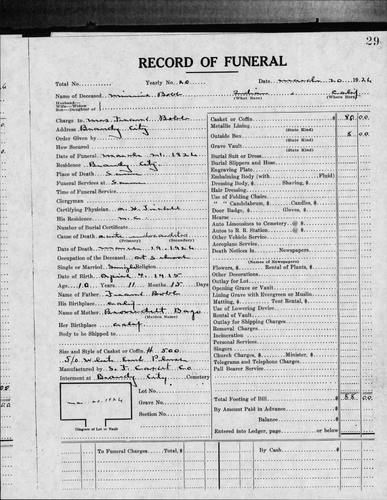 29
RECORD OF FUNERAL
Total No. Yearly No. 20 Date March 20 1926
Name of Deceased Minnie Bobb Indian Calif
Husband—Wife—Widow
Son—Daughter of (What Race) (Where Born)
Charge to Mrs Frank Bobb
Address Brandy City
Order Given by
How Secured
Date of Funeral March 21, 1926
Residence Brandy City
Place of Death Same
Funeral Services at Same
Time of Funeral Service
Clergyman
Certifying Physician
His Residence N. C.
Number of Burial Certificate
Cause of Death acute
(Primary) (Secondary)
Date of Death March 19, 1926
Occupation of Deceased at School
Single or Married Single Religion
Date of Birth April 4, 1915
Age, 10 Years 11 Months 15 Days
Name of Father Frank Bobb
His Birthplace Calif
Name of Mother
(Maiden Name)
Her Birthplace Calif
Body to be Shipped to
Size and Style of Casket or Coffin # 500
5/0 White Emb Plush
Manufactured by S. F. Casket Co
Interment at Brandy City Cemetery
Lot No.
Grave No.
Section No.
1926
Diagram of Lot or Vault
Casket or Coffin $ 80 00
Metallic Lining
(State Kind)
Outside Box 8 00
(State Kind)
Grave Vault
(State Kind)
Burial Suit or Dress
Burial Slippers and Hose
Engraving Plate
Embalming Body (with Fluid)
Dressing Body, $ Shaving, $
Hair Dressing
Use of Folding Chairs
" " Candelabrum, $ Candles, $
Door Badge, $ Gloves, $
Hearse
Auto Limousines to Cemetery @ $
Autos to R. R. Station @ $
Other Vehicle Service
Aeroplane Service
Death Notices in Newspapers
(Names of Newspapers)
Flowers, $ Rental of Plants, $
Other Decorations
Outlay for Lot
Opening Grave or Vault
Lining Grave with Evergreen or Muslin
Matting, $ Tent Rental, $
Use of Lowering Device
Rental of Vault
Outlay for Shipping Charges
Removal Charges
Incineration
Personal Services
Singers
Church Charges, $ Minister, $
Telegrams and Telephone Charges
Pall Bearer Service
Total Footing of Bill $ 88 00
By Amount Paid in Advance
Balance $
Entered into Ledger, page or below
To Funeral Charges Total, $ By Cash $